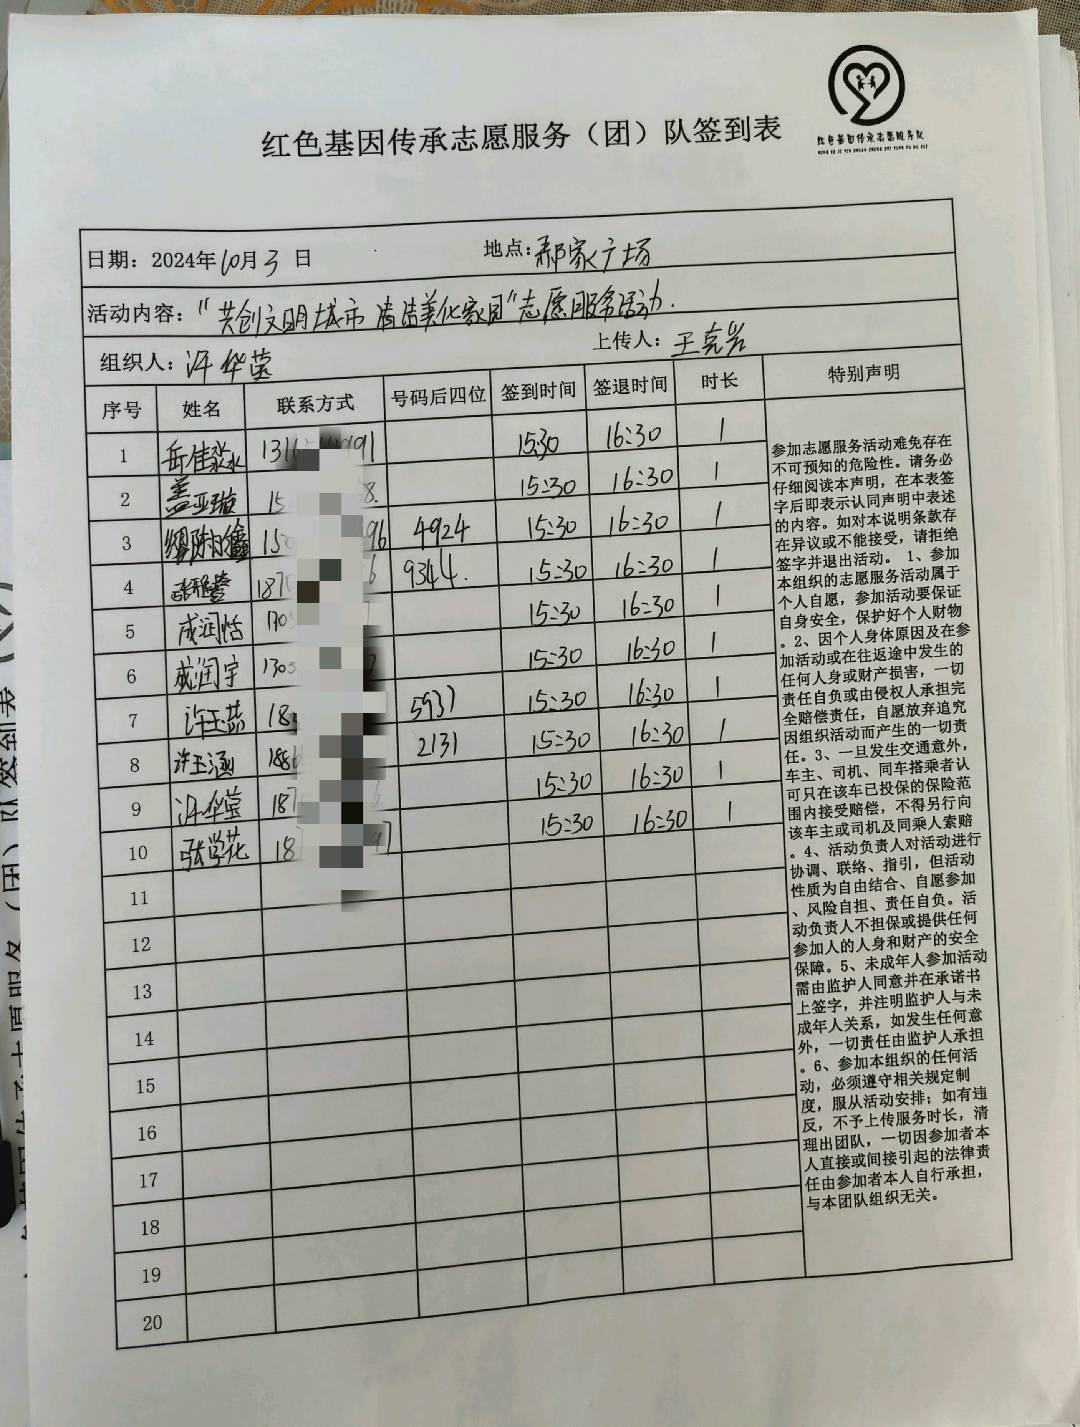 红色基因传承志愿服务队
红色基因传承志愿服务（团）队签到表
日期：2024年10月3日 地点：郝家广场
活动内容："共创文明城市 清洁美化家园"志愿服务活动.
组织人：汪华莹 上传人：王克岩
序号 姓名 联系方式 号码后四位 签到时间 签退时间 时长 特别声明
1 岳佳淼 15:30 16:30 1
2 盖亚璇 15:30 16:30 1
3 4924 15:30 16:30 1
4 9344. 15:30 16:30 1
5 成润恬 1305 15:30 16:30 1
6 成润宇 1305 15:30 16:30 1
7 许玉燕 18 5937 15:30 16:30 1
8 许玉涵 186 2131 15:30 16:30 1
9 汪华莹 187 15:30 16:30 1
10 张学花 18 15:30 16:30 1
11
12
13
14
15
16
17
18
19
20
参加志愿服务活动难免存在
不可预知的危险性。请务必
仔细阅读本声明，在本表签
字后即表示认同声明中表述
的内容。如对本说明条款存
在异议或不能接受，请拒绝
签字并退出活动。 1、参加
本组织的志愿服务活动属于
个人自愿，参加活动要保证
自身安全，保护好个人财物
。2、因个人身体原因及在参
加活动或在往返途中发生的
任何人身或财产损害，一切
责任自负或由侵权人承担完
全赔偿责任，自愿放弃追究
因组织活动而产生的一切责
任。3、一旦发生交通意外，
车主、司机、同车搭乘者认
可只在该车已投保的保险范
围内接受赔偿，不得另行向
该车主或司机及同乘人索赔
。4、活动负责人对活动进行
协调、联络、指引，但活动
性质为自由结合、自愿参加
、风险自担、责任自负。活
动负责人不担保或提供任何
参加人的人身和财产的安全
保障。5、未成年人参加活动
需由监护人同意并在承诺书
上签字，并注明监护人与未
成年人关系，如发生任何意
外，一切责任由监护人承担
。6、参加本组织的任何活
动，必须遵守相关规定制
度，服从活动安排；如有违
反，不予上传服务时长，清
理出团队，一切因参加者本
人直接或间接引起的法律责
任由参加者本人自行承担，
与本团队组织无关。